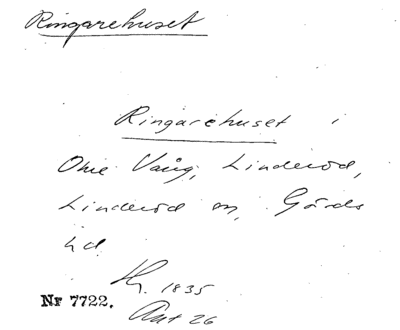 Ringarehuset
Ringarehuset i
Ohe Vång, Linderöd,
Linderöd sn, Gärds
hd.
Kr. 1835
Nr 7722.
Akt 26